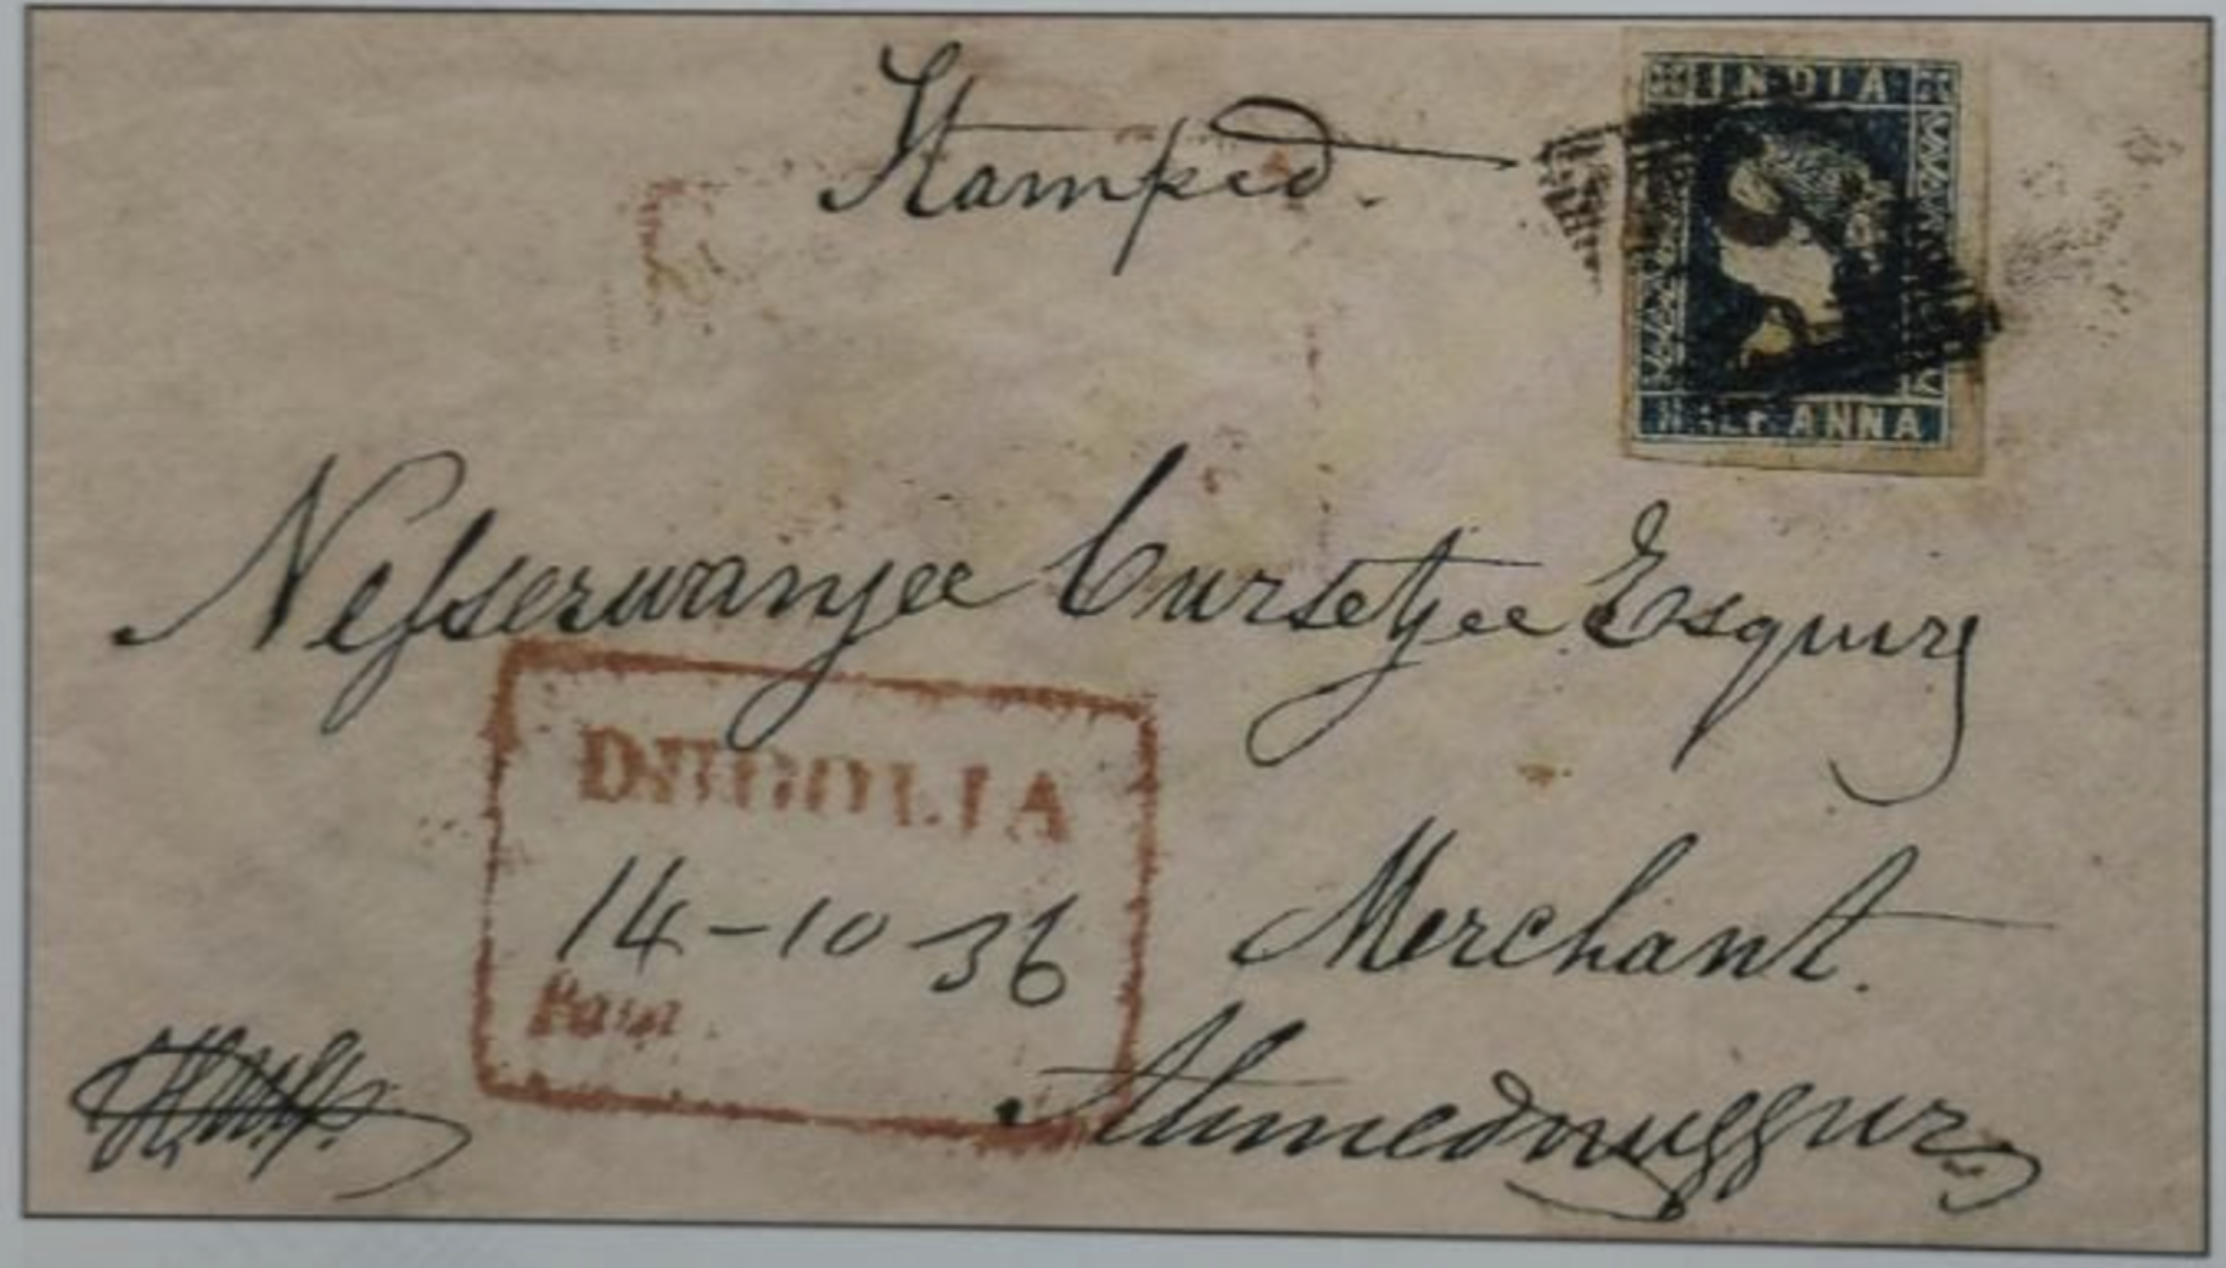 Stamped.
INDIA
HALF ANNA
Nesserwanjee Cursetjee Esquire
DHOOLIA
14-10-36
Paid
Merchant.
Ahmednuggur